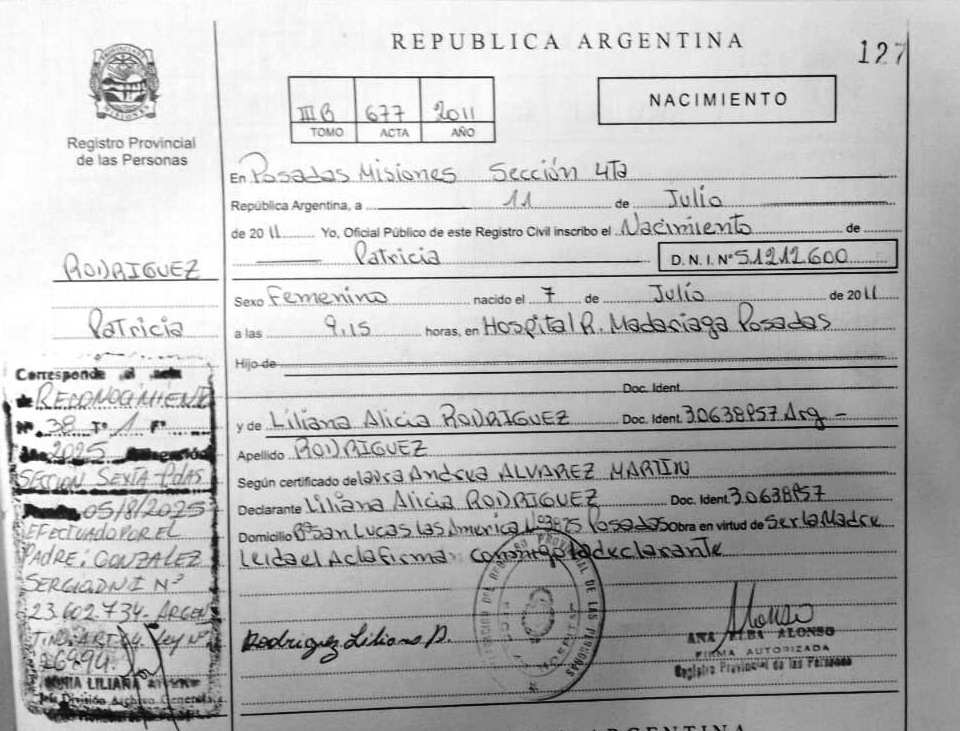 REPUBLICA ARGENTINA
127
III B 677 2011
TOMO ACTA AÑO
NACIMIENTO
Registro Provincial
de las Personas
En Posadas Misiones Sección 4Ta
República Argentina, a 11 de Julio
de 2011 Yo, Oficial Público de este Registro Civil inscribo el Nacimiento de
Patricia D. N. I. Nº 51.212.600
Sexo Femenino nacido el 7 de Julio de 2011
a las 9.15 horas, en Hospital R. Madariaga Posadas
Hijo de
Doc. Ident.
y de Liliana Alicia RODRIGUEZ Doc. Ident. 30638957 Arg -
Apellido RODRIGUEZ
Según certificado de Laura Andrea ALVAREZ MARTIN
Declarante Liliana Alicia RODRIGUEZ Doc. Ident. 30638957
Domicilio Bº San Lucas Las America Nº 3875 Posadas Obra en virtud de Ser la Madre
Leida el Acta firma conmigo la declarante
Rodriguez Liliana A.
ANA ELBA ALONSO
FIRMA AUTORIZADA
Registro Provincial de las Personas
RODRIGUEZ
Patricia
Corresponde al acta
RECONOCIMIENTO
Nº 38 Tº 1 Fº
Año 2025
SECCION SEXTA Pdas
05/8/2025
EFECTUADO POR EL
PADRE: GONZALEZ
SERGIO DNI Nº
23.602.734- ARGEN
TINO: ART. Ley Nº
26994.
SONIA LILIANA
División Archivo General
ARGENTINA